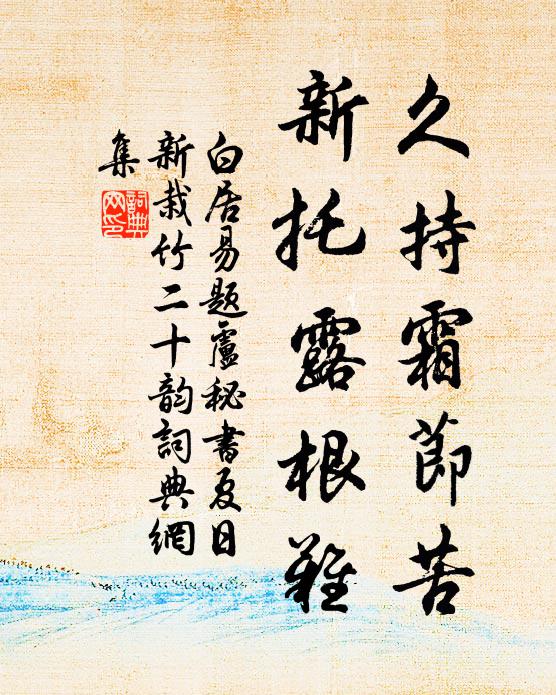 久持霜節苦
新托露根難
白居易題盧秘書夏日
新栽竹二十韵詞典網
集
詞典
网印